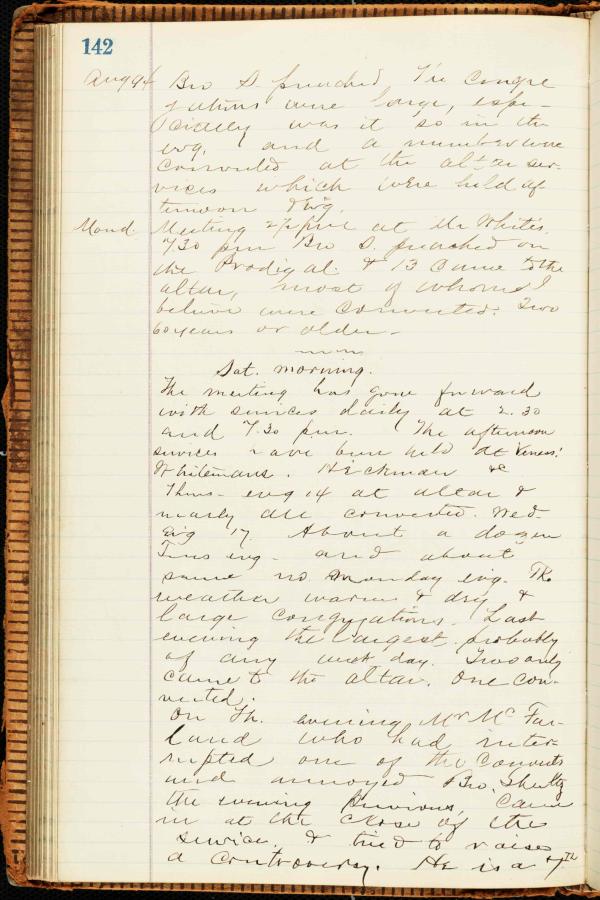 142
Aug 94 Bro S. preached The congre
gations were large, espe-
cially was it so in the
evg, and a number were
converted at the altar ser-
vices which were held af
ternoon & evg.
Mond. Meeting 2½ pm at Mr White's.
7.30 pm Bro S. preached on
the Prodigal. & 13 came to the
altar, most of whom I
believe were converted. Two
60 years or older.
Sat. morning.
The meeting has gone forward
with services daily at 2.30
and 7.30 pm. The afternoon
services have been held at
Whitemans. Hickman &c
Thurs- evg 14 at altar &
nearly all converted. Wed-
evg 17. About a dozen
Tues evg- and about
same no. Monday evg. The
weather warm & dry &
large congregations. Last
evening the largest probably
of any week day. Two only
came to the altar. One con-
verted.
On Th. evening Mr McFar-
land who had inter-
rupted one of the converts
and annoyed Bro. Shultz
the evening previous, came
in at the close of the
service. & tried to raise
a controversy. He is a 7th